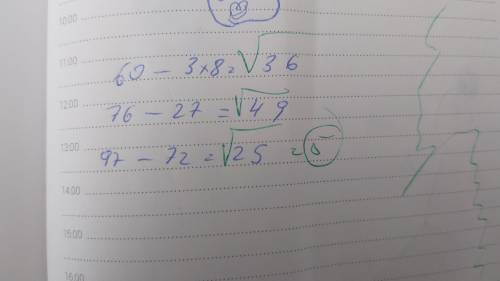 10:00
11:00
60 - 3×8 = √36
12:00
76 - 27 = √49
13:00
97 - 72 = √25 = 5
14:00
15:00
16:00